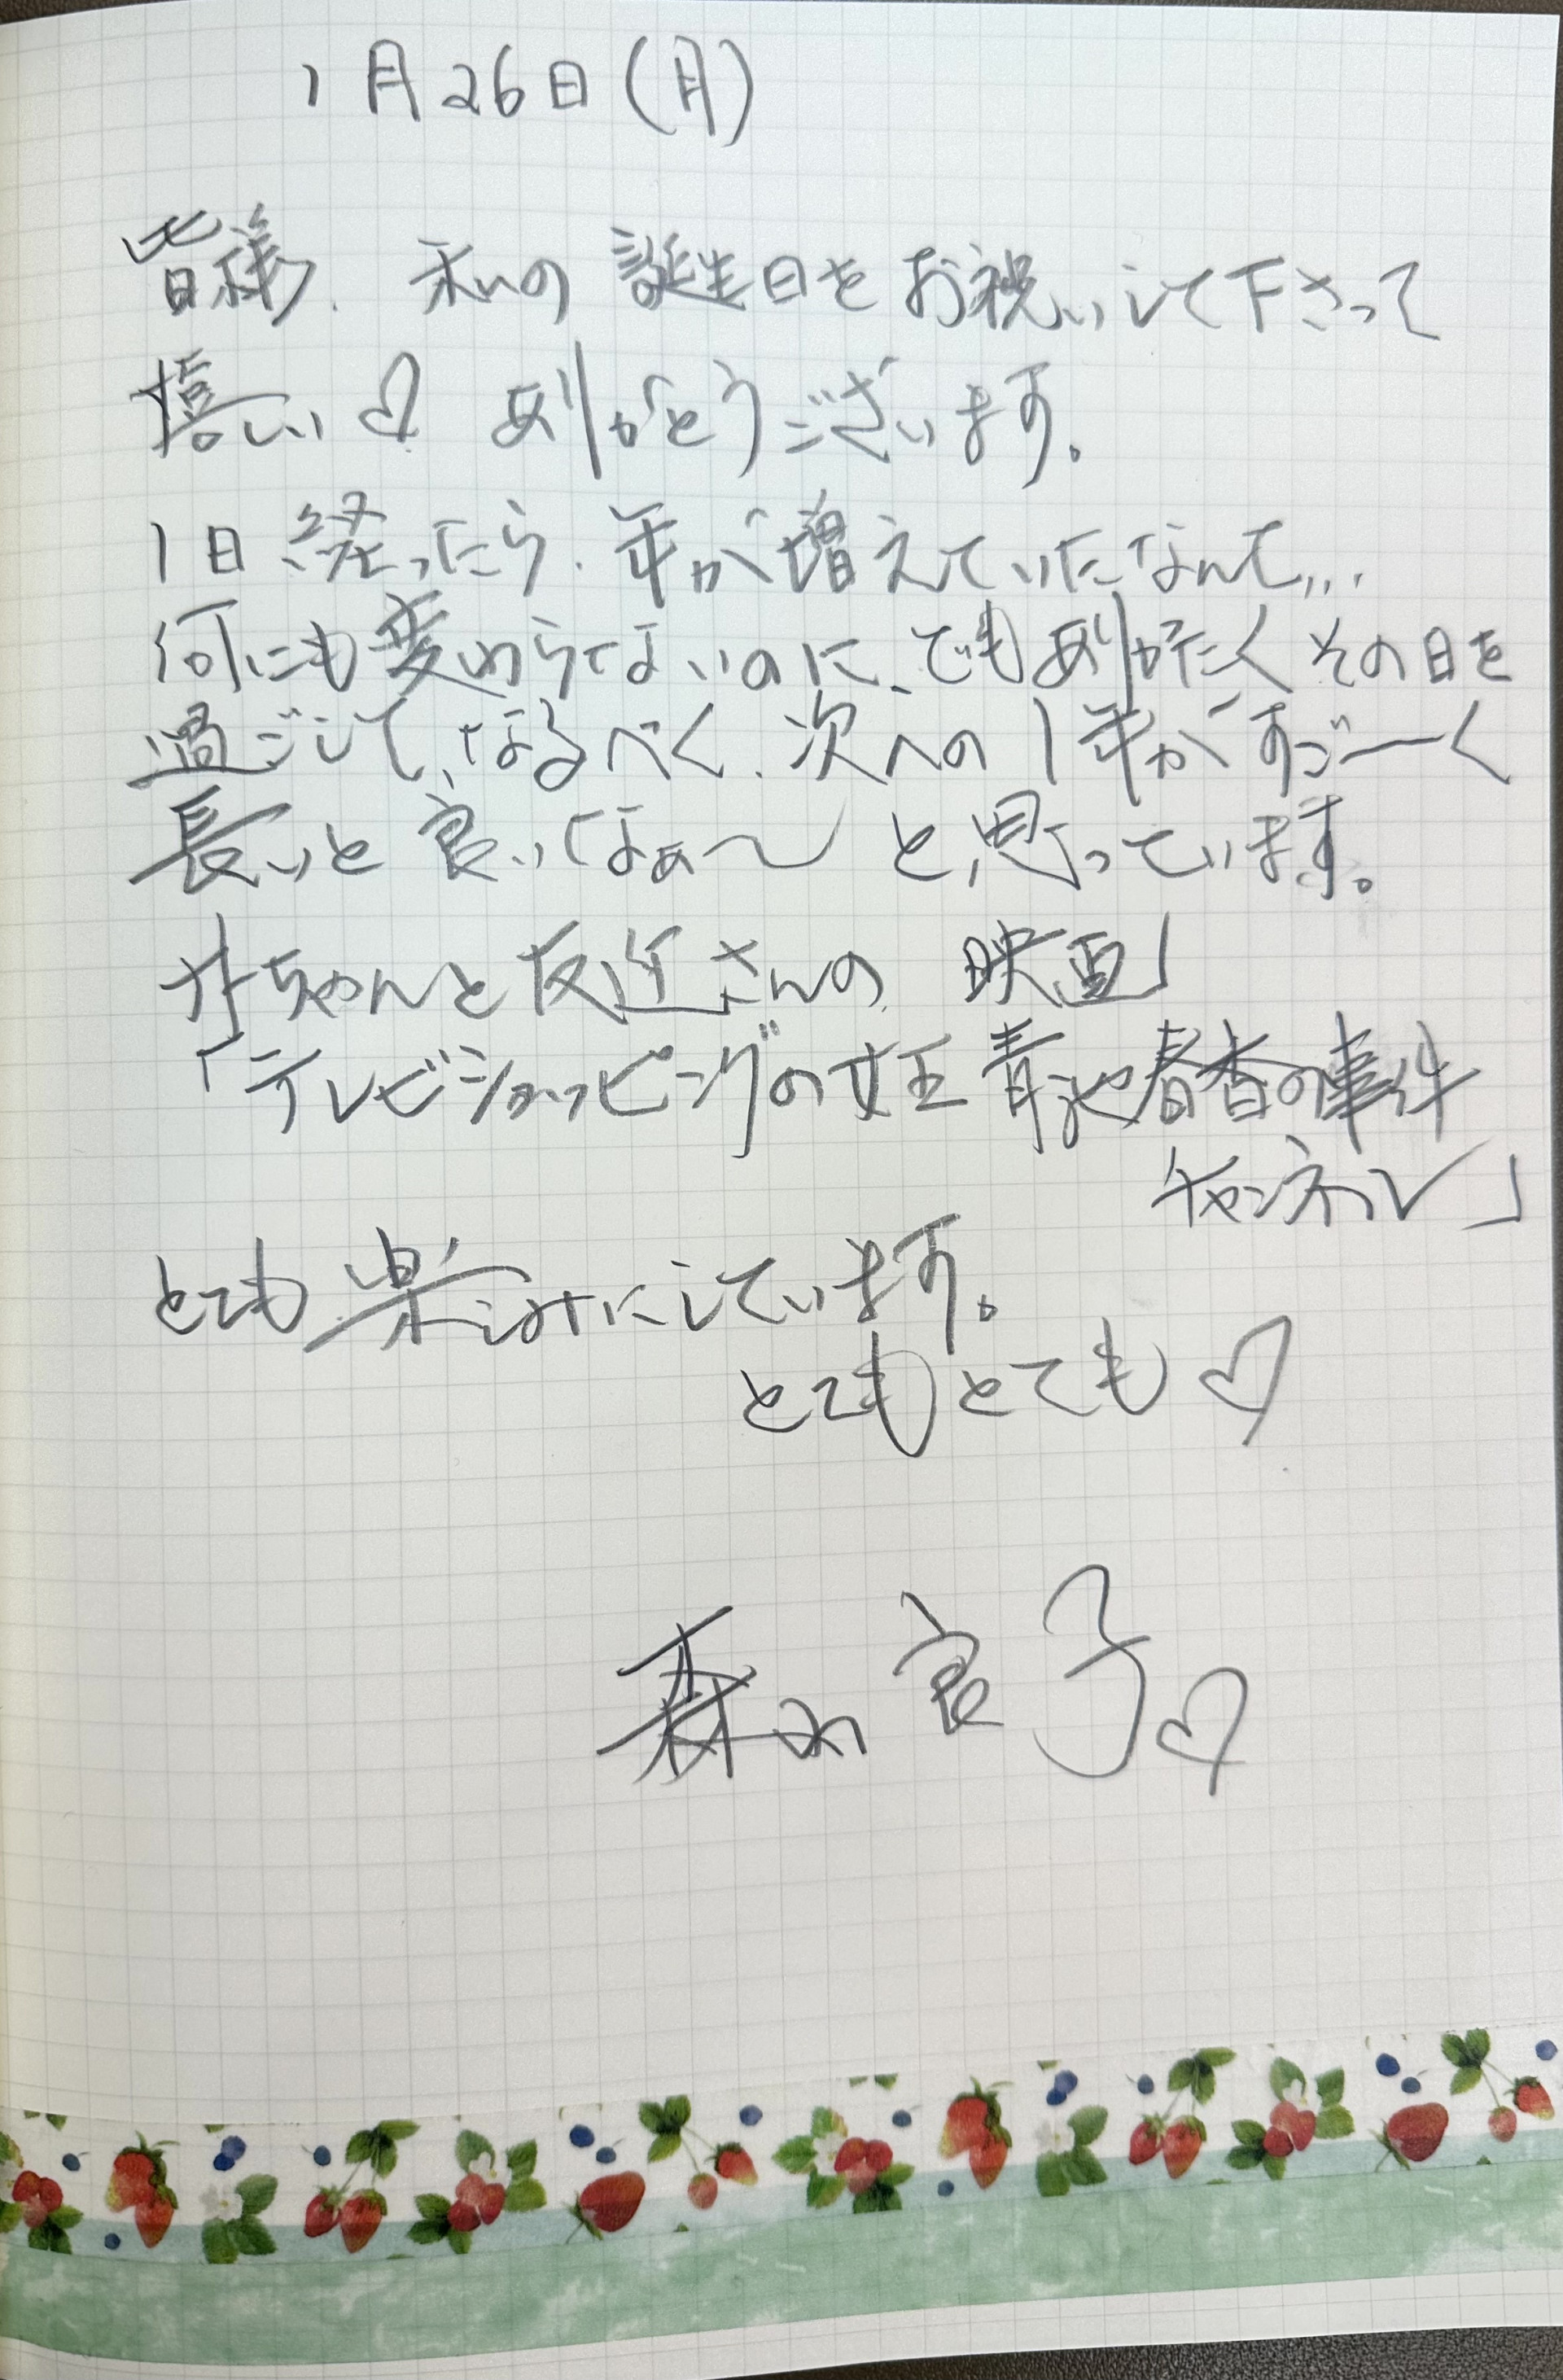 1月26日(月)
皆様、私の誕生日をお祝いして下さって
嬉しい♡ ありがとうございます。
1日経ったら、年が増えていたなんて...
何にも変わらないのに、でもありがたくその日を
過ごして、なるべく、次への1年がすごーく
長いと良いなぁ〜と思っています。
ちゃんと友近さんの 映画
「テレビショッピングの女王 青池春香の事件
チャンネル」
とても楽しみにしています。
とてもとても♡
森山良子♡